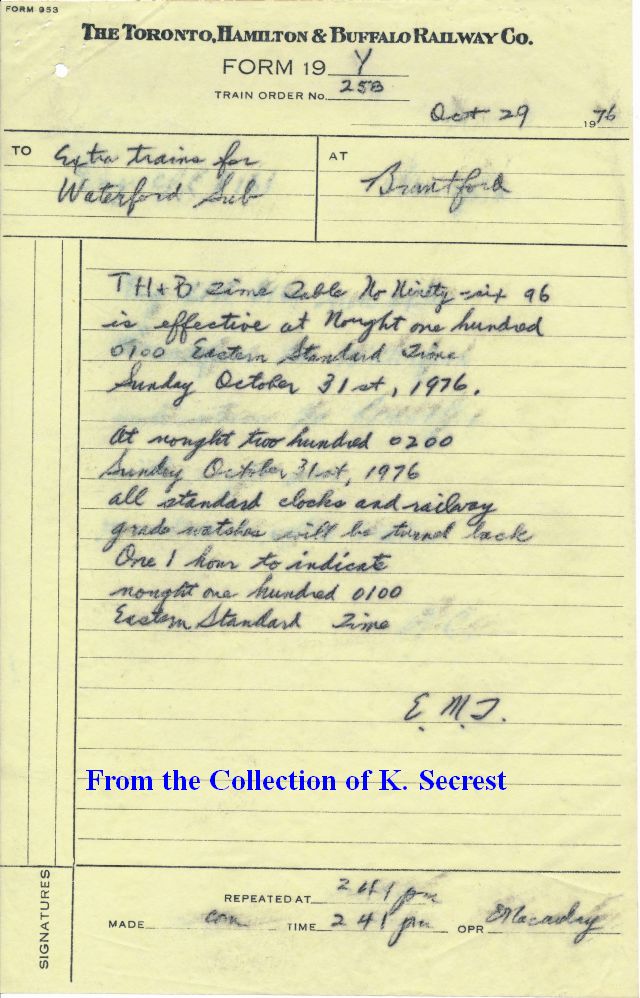 FORM 953
THE TORONTO, HAMILTON & BUFFALO RAILWAY CO.
FORM 19 Y
TRAIN ORDER No. 258
Oct 29 1976
TO Extra trains for
Waterford Sub
AT Brantford
TH+B Time Table No Ninety-six 96
is effective at Nought one hundred
0100 Eastern Standard Time
Sunday October 31st, 1976.
At nought two hundred 0200
Sunday October 31st, 1976
all standard clocks and railway
grade watches will be turned back
One 1 hour to indicate
nought one hundred 0100
Eastern Standard Time
E. M. T.
From the Collection of K. Secrest
SIGNATURES
REPEATED AT 241 pm
MADE com TIME 241 pm OPR Macaulay